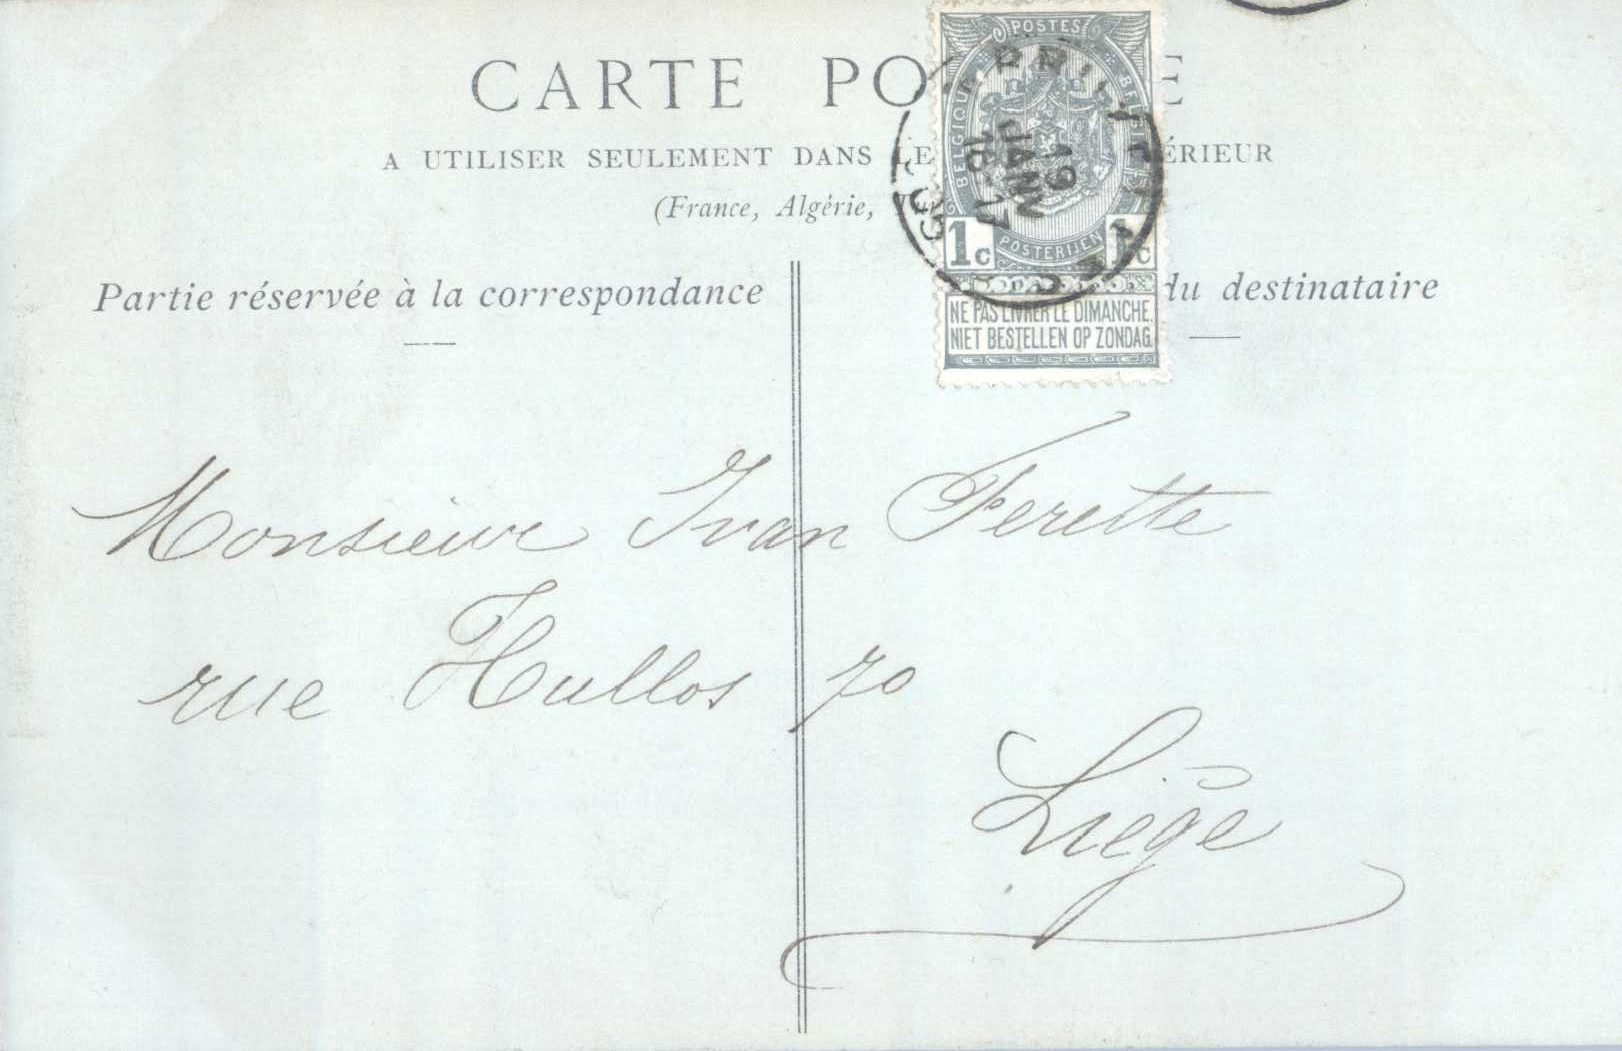 CARTE PO E
A UTILISER SEULEMENT DANS LE ÉRIEUR
(France, Algérie,
Partie réservée à la correspondance
du destinataire
POSTES
BELGIQUE
BELGIE
1c
1c
POSTERIJEN
NE PAS LIVRER LE DIMANCHE.
NIET BESTELLEN OP ZONDAG.
19
JANV
16-17
Monsieur Ivan Ferette
rue Hullos 70
Liége